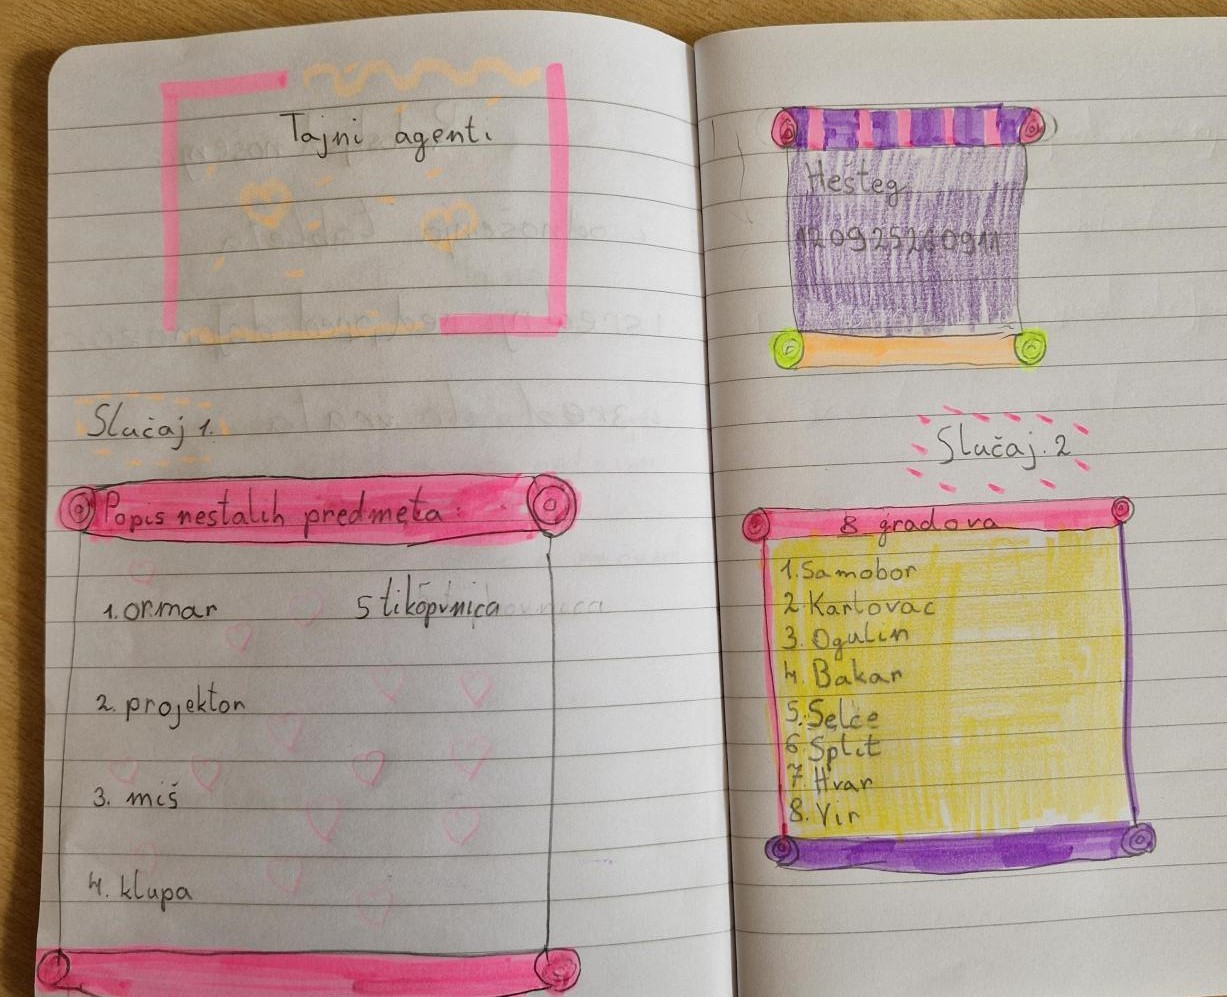 Tajni agenti
Slučaj 1.
Popis nestalih predmeta:
1. ormar
2. projektor
3. miš
4. klupa
Hešteg
Slučaj. 2
8 gradova
1. Samobor
2. Karlovac
3. Ogulin
4. Bakar
5. Selce
6. Split
7. Hvar
8. Vir